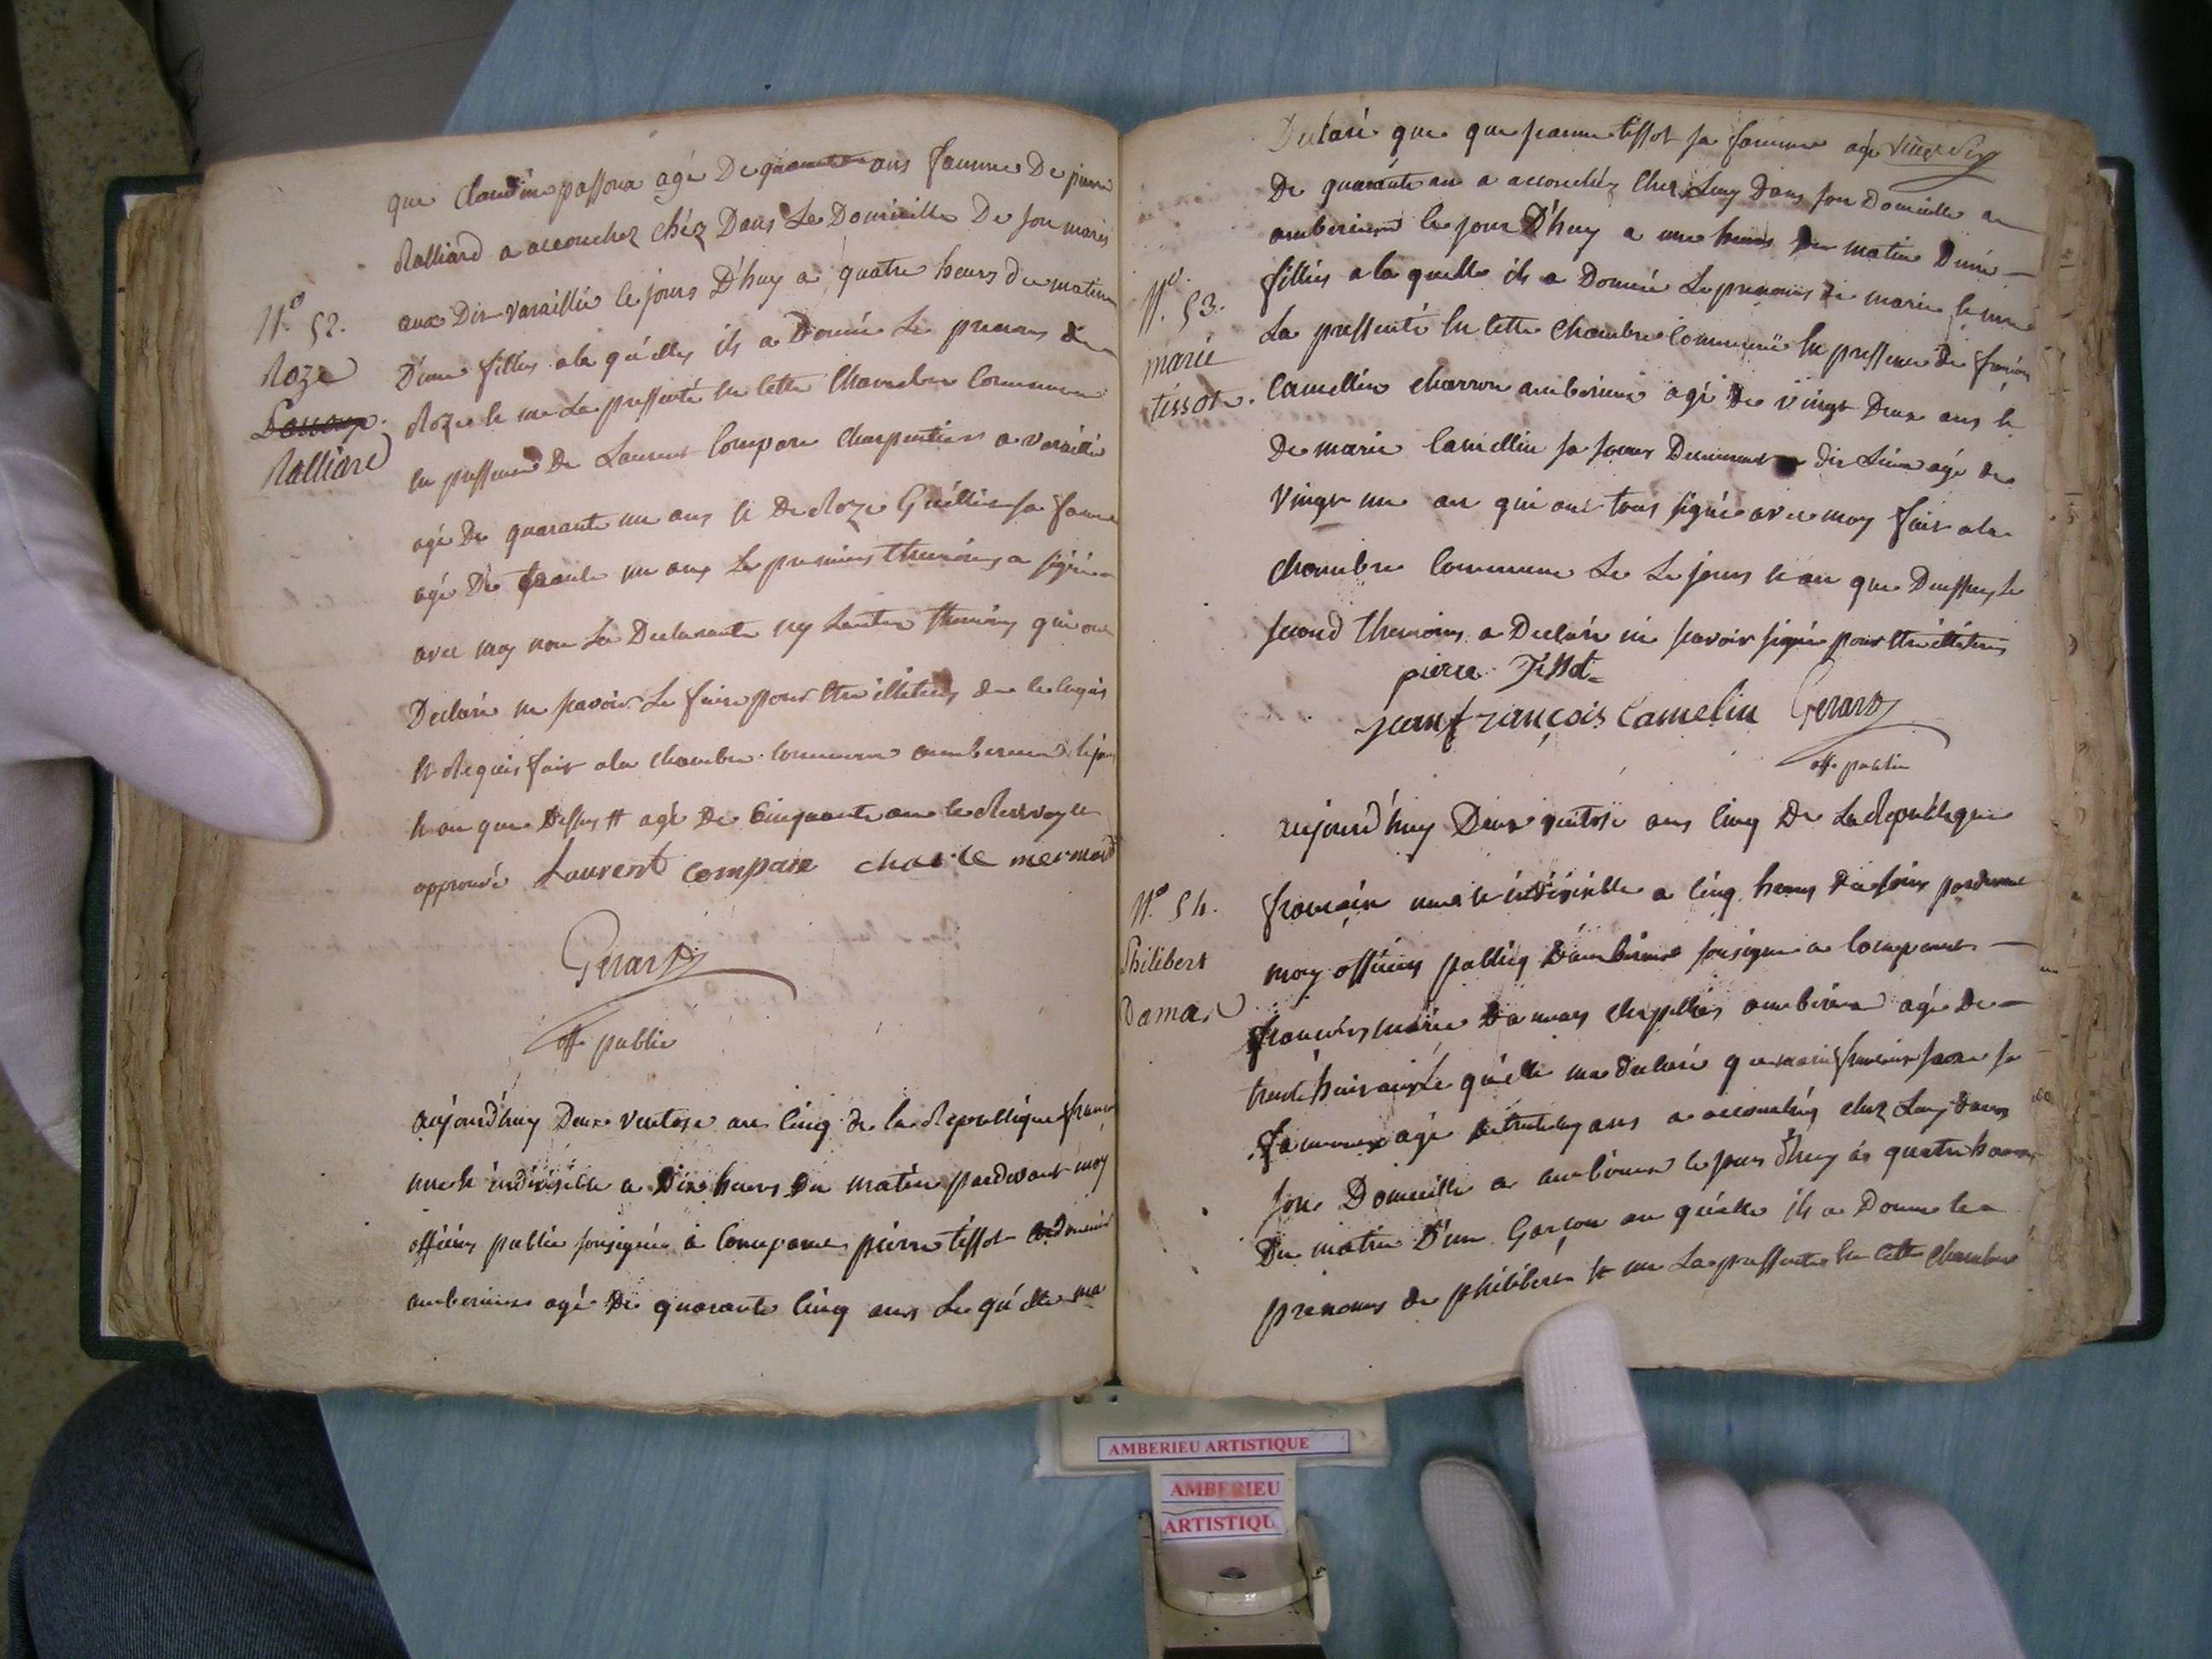 que Claudine passora agé De quarante ans famme De pierre
Ralliard a accouchez chéz Dans Le Domicille De son maris
aux Dit varaillie le jours D'huy a quatre heurs du matin
D'une filles a la qu'elles ils a Donné Le prenoms de
Roze et me La pressenté en cette Chambre Commune
en pressence De Laurent Compare Charpentiers a varaillie
agé De quarante un ans et De Roze Guillier sa famme
agé De trante un ans Le premiers themoins a signé
avec moy non La Declarante ny Lautre themoins qui ont
Declaré ne savoir Le faire pour être illiterés de ce enquis
et requis fait a la chambre commune amberieux le jour
et an que Dessus # agé De Cinquante ans le renvoy
approuvé Laurent Compare charle mermand
Gerard
off. public
N.° 52.
Roze
Passora
Ralliard
aujourd'huy Deux ventose an cinq de la Republique francoi
une et indivisible a Dix heurs Du matin pardevant moy
officiers public sousignée a Comparus pierre tissot cordonnié
amberieux agé De quarante cinq ans Le qu'elle ma
Declaré que que jeanne tissot sa famme agé vingt six
De quarante an a accouchéz chez Luy Dans son Domicille a
amberieux le jour D'huy a une heurs du matin D'une
filles a la quelle ils a Donné Le prenoms de marie et me
La pressenté en cette Chambre Commune en pressence De françois
Camellin charron amberieux agé De vingt Deux ans et
De marie Camellin sa soeur Demeurant a dit Lieux agé de
vingt un an qui ont tous signé avec moy fait a la
chambre Commune Le Le jours et an que Dessus Le
second themoins a Declaré ne savoir signé pour être illiterés
pierre Tissot
jean françois Camelin Gerard
off. public
N.° 53.
marie
tissot.
aujourd'huy Deux ventose ans cinq De La Republique
francaise une et indivisible a cinq heurs du soir pardevant
moy officiers publicq D'amberieux sousigné a Comparus
francois marie Damas chapelliers amberieux agé De
trente huit ans Le qu'elle ma declaré que marie francoise sa
famme agé de trente ans a accouchés chez Luy dans
son Domicille a amberieux le jour d'huy a quatre heurs
Du matin D'un Garçon au qu'elle ils a Donné Le
prenoms de philibert et me La pressenté en cette chambre
N.° 54.
Philibert
Damas
AMBERIEU ARTISTIQUE
AMBERIEU
ARTISTIQU